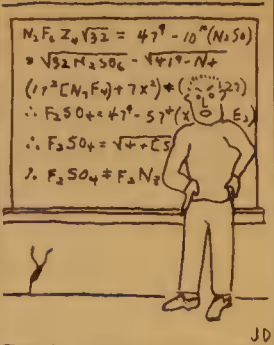 N₂F₆Z₄√32 = 47⁹ - 10¹⁰(N₂SO)
√32 N₂SO₆ - √41⁹-N4
(17³[N₇F₄) + 7X³) + ( 127)
∴ F₂SO₄ = 47⁹ - 57⁴(X E₂)
∴ F₂SO₄ = √4+[5
∴ F₂SO₄ ≠ F₂N₂
JD